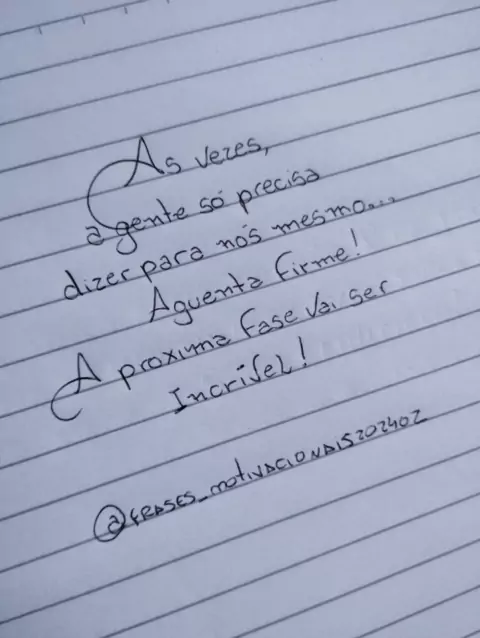 As vezes,
a gente só precisa
dizer para nós mesmo...
Aguenta firme!
A proxima fase vai ser
Incrível!
@frases_motivacionais202402